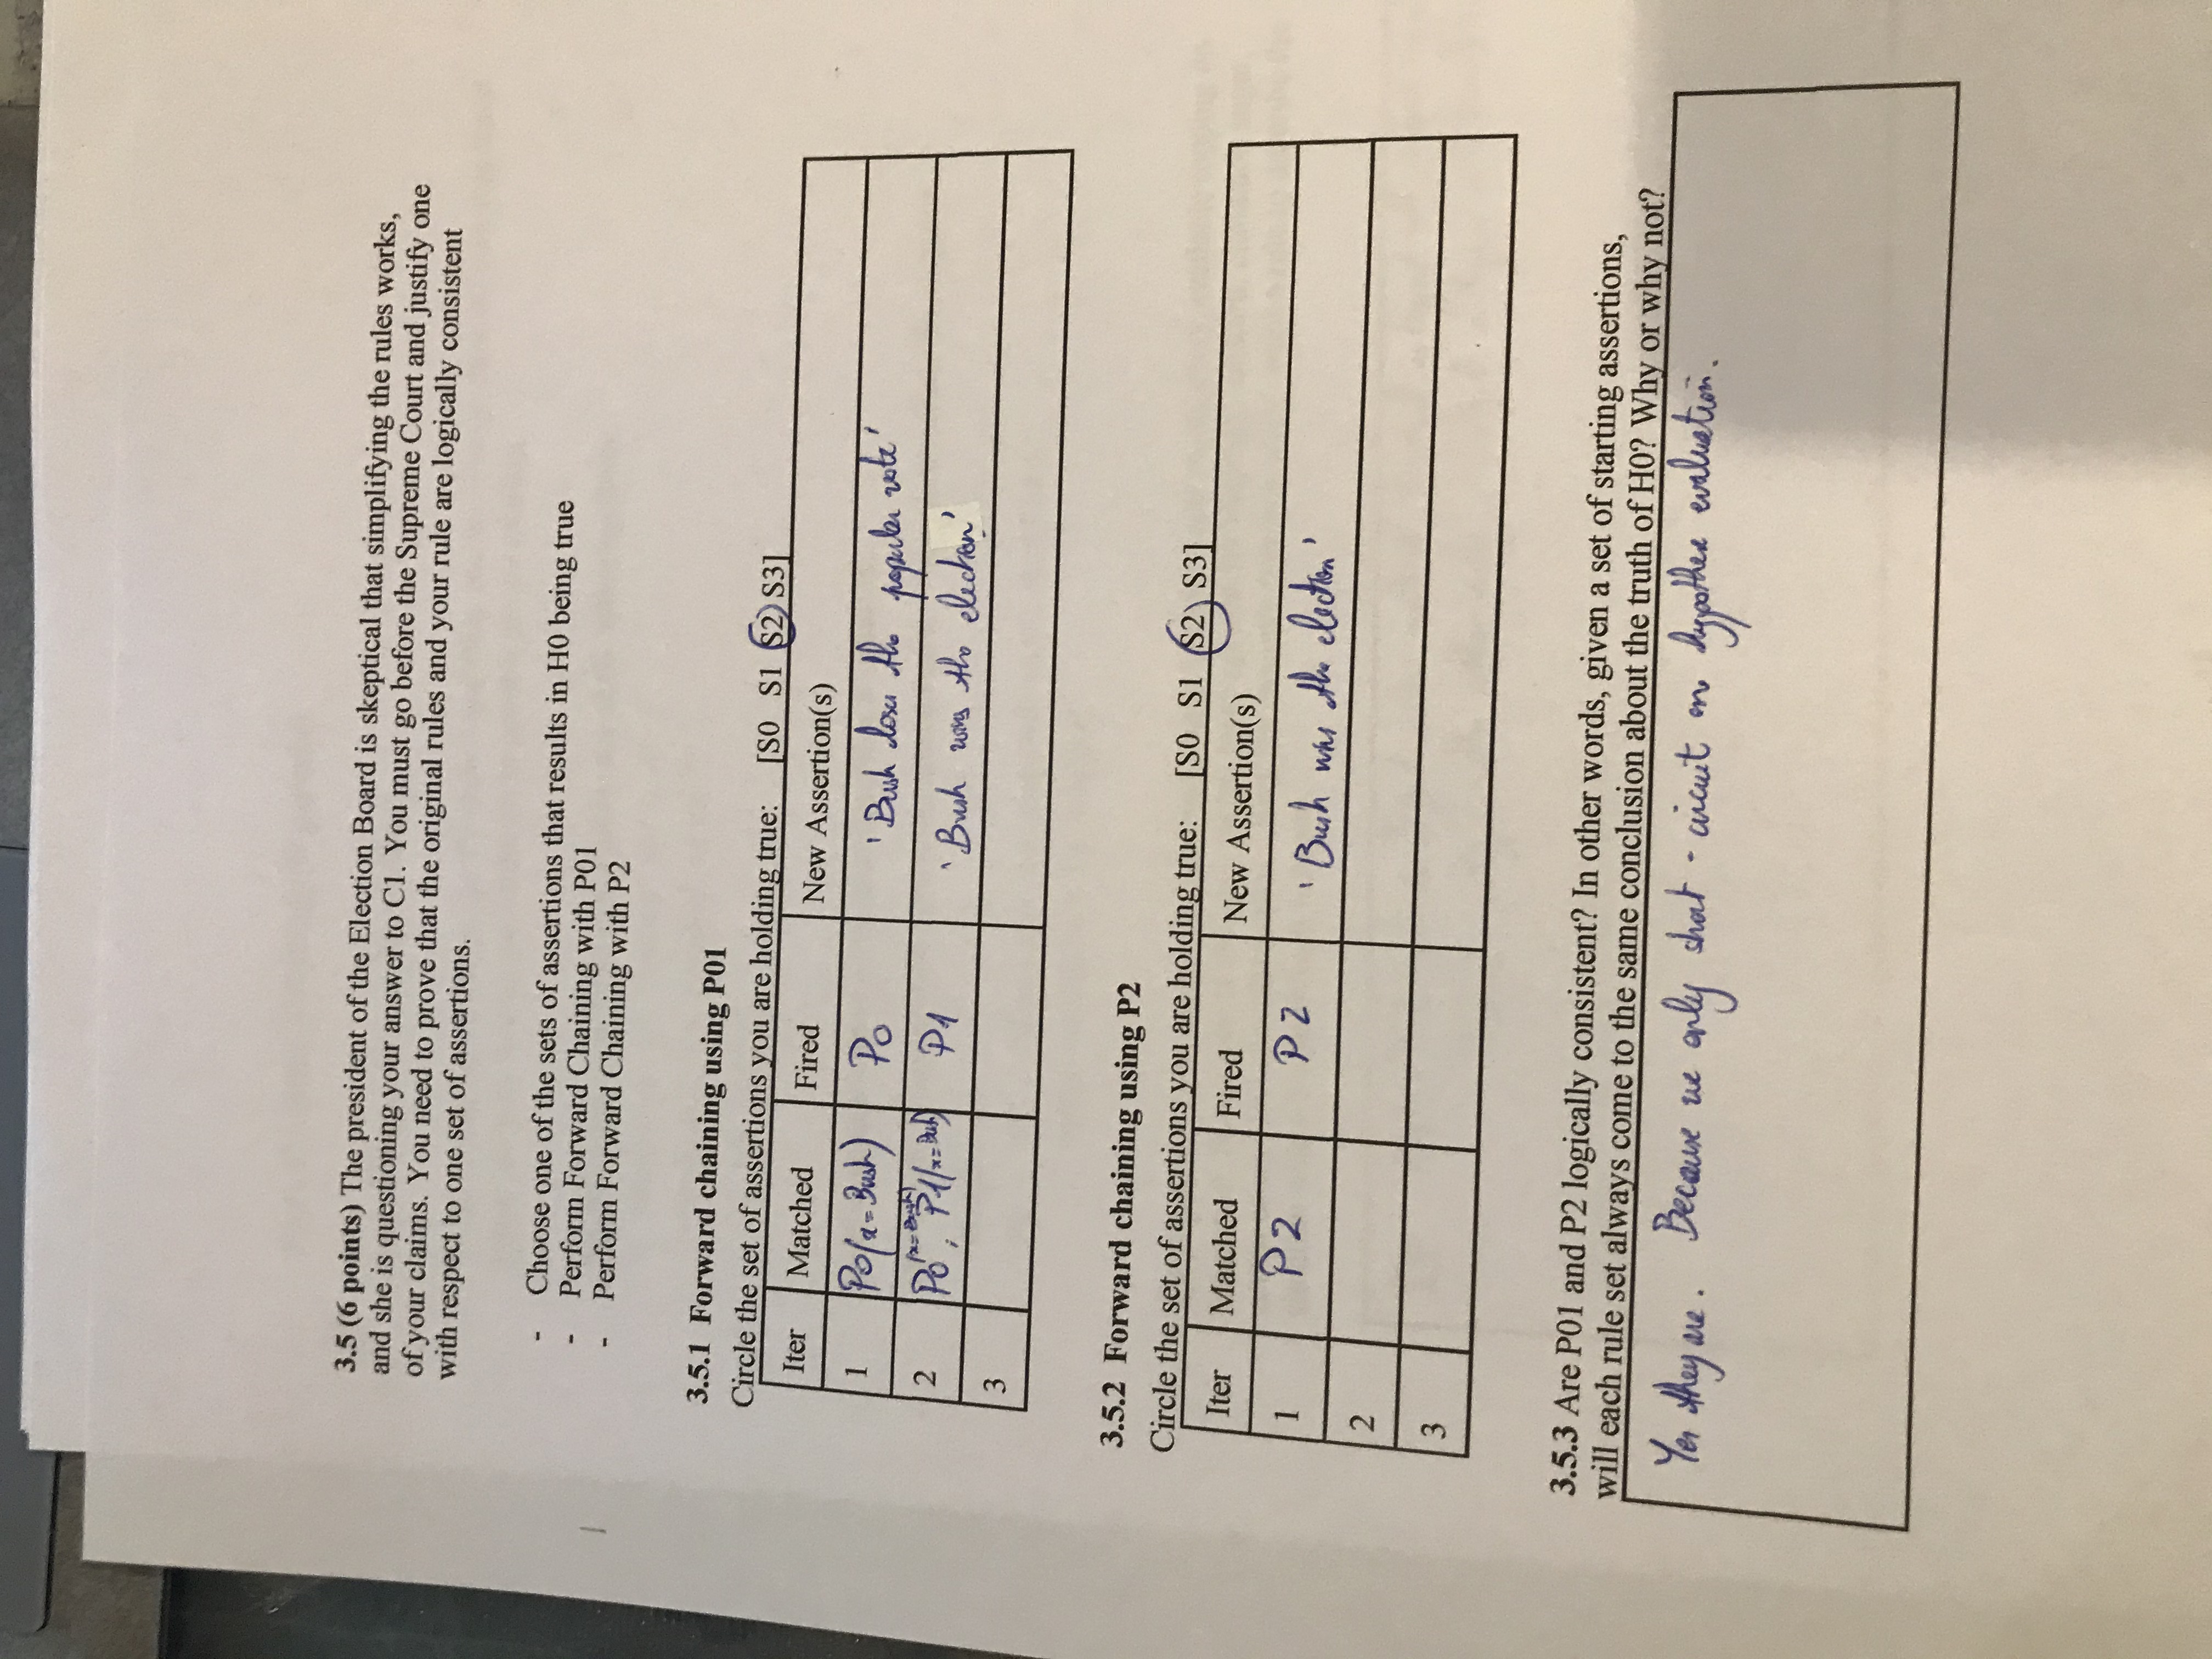 3.5 (6 points) The president of the Election Board is skeptical that simplifying the rules works,
and she is questioning your answer to C1. You must go before the Supreme Court and justify one
of your claims. You need to prove that the original rules and your rule are logically consistent
with respect to one set of assertions.
- Choose one of the sets of assertions that results in H0 being true
- Perform Forward Chaining with P01
- Perform Forward Chaining with P2
3.5.1 Forward chaining using P01
Circle the set of assertions you are holding true: [S0 S1 S2 S3]
Iter Matched Fired New Assertion(s)
1 P0(x=Bush) P0 'Bush loses the popular vote'
2 P0(x=Bush), P1(x=Bush) P1 'Bush wins the election'
3
3.5.2 Forward chaining using P2
Circle the set of assertions you are holding true: [S0 S1 S2 S3]
Iter Matched Fired New Assertion(s)
1 P2 P2 'Bush wins the election'
2
3
3.5.3 Are P01 and P2 logically consistent? In other words, given a set of starting assertions,
will each rule set always come to the same conclusion about the truth of H0? Why or why not?
Yes they are. Because we only short-circuit on evaluation.